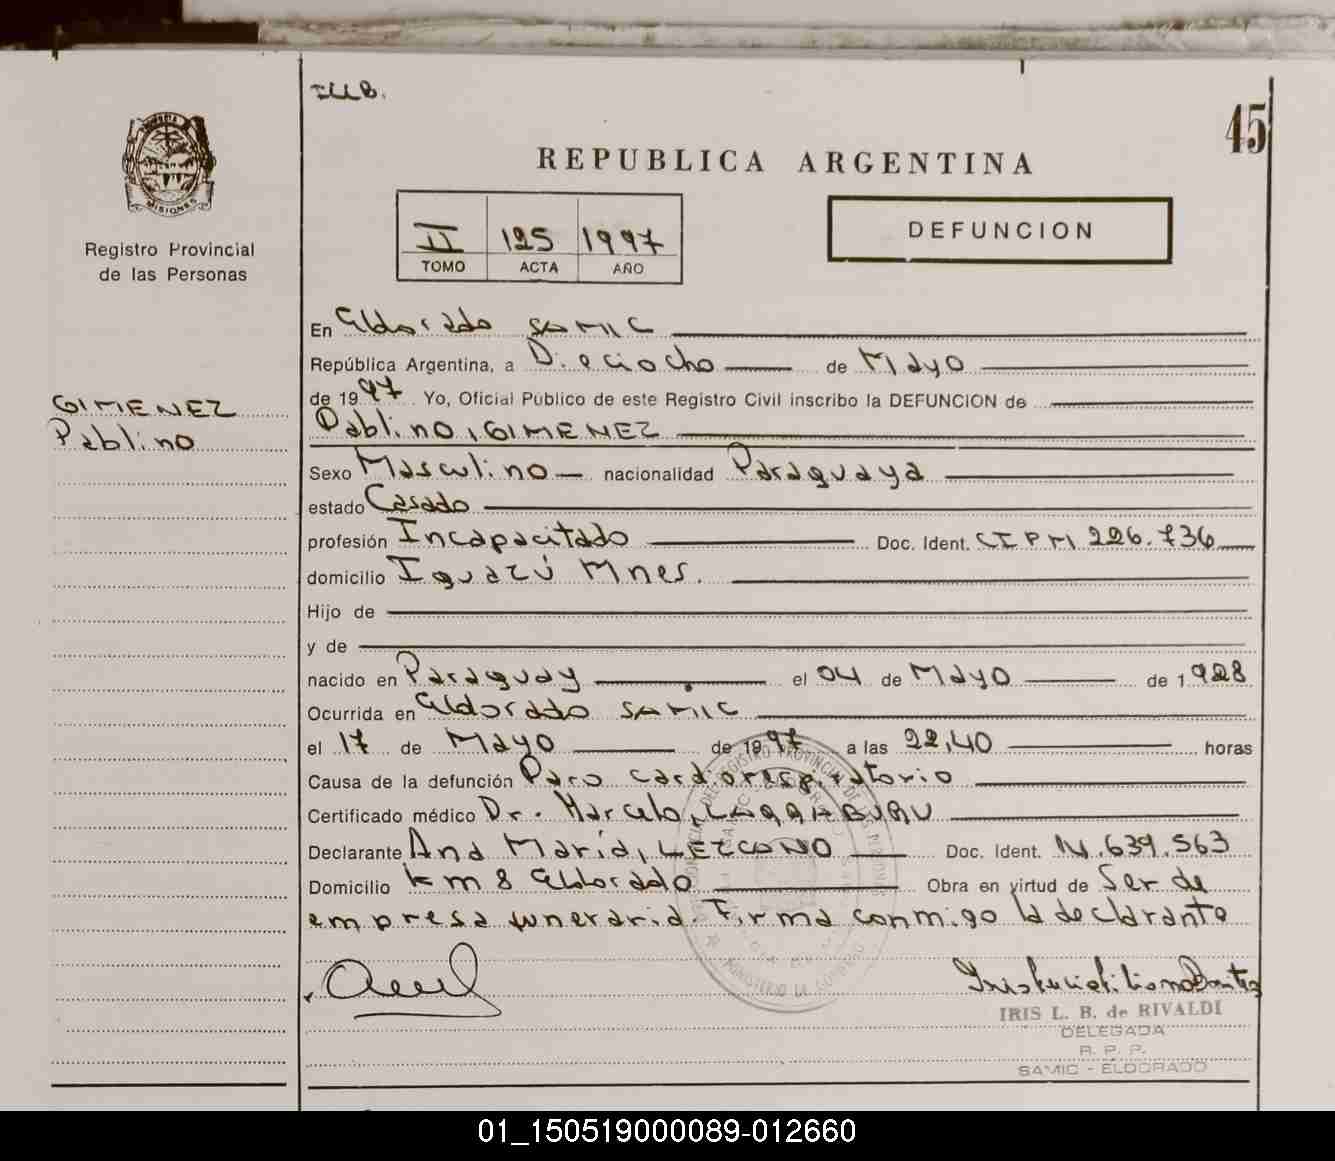 45
REPUBLICA ARGENTINA
MISIONES
Registro Provincial
de las Personas
II 125 1997
TOMO ACTA AÑO
DEFUNCION
GIMENEZ
Pablino
En Eldorado SAMIC
República Argentina, a Dieciocho de Mayo
de 1997 Yo, Oficial Público de este Registro Civil inscribo la DEFUNCION de
Pablino, GIMENEZ
Sexo Masculino nacionalidad Paraguaya
estado Casado
profesión Incapacitado Doc. Ident. CIPM 226.736
domicilio Iguazú Mnes.
Hijo de
y de
nacido en Paraguay el 04 de Mayo de 1928
Ocurrida en Eldorado SAMIC
el 17 de Mayo de 1997 a las 22,40 horas
Causa de la defunción Paro cardiorespiratorio
Certificado médico Dr. Marcelo, LARRABURU
Declarante Ana María, LEZCANO Doc. Ident. 639.563
Domicilio km 8 Eldorado Obra en virtud de Ser de
empresa funeraria. Firma conmigo la declarante
IRIS L. B. de RIVALDI
DELEGADA
R. P. P.
SAMIC - ELDORADO
01_150519000089-012660